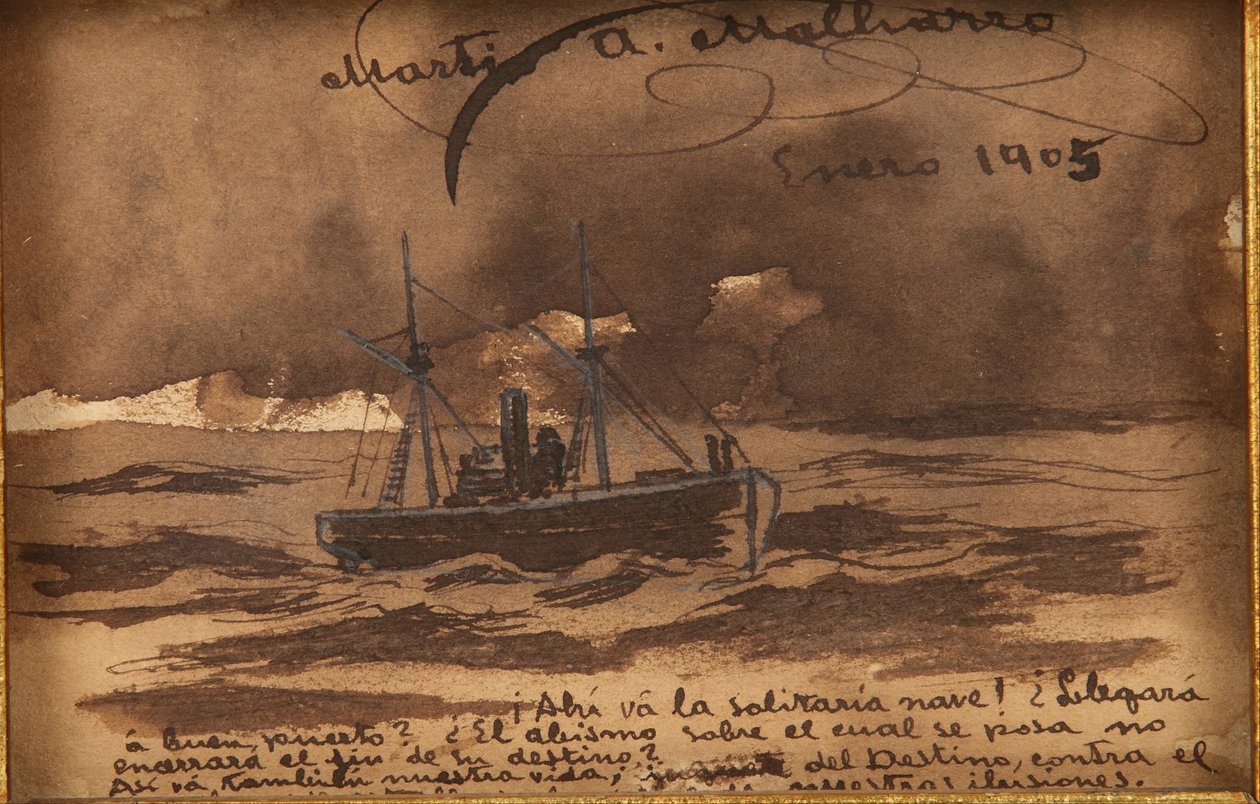 Martín A. Malharro
Enero 1905
¡Ahí vá la solitaria nave! ¿Llegará
á buen puerto? ¿El abismo sobre el cual se posa no
enarrará el fin de su destino?
Asi vá, también nuestra vida, juguete del Destino, contra el
nuestras ilusiones.